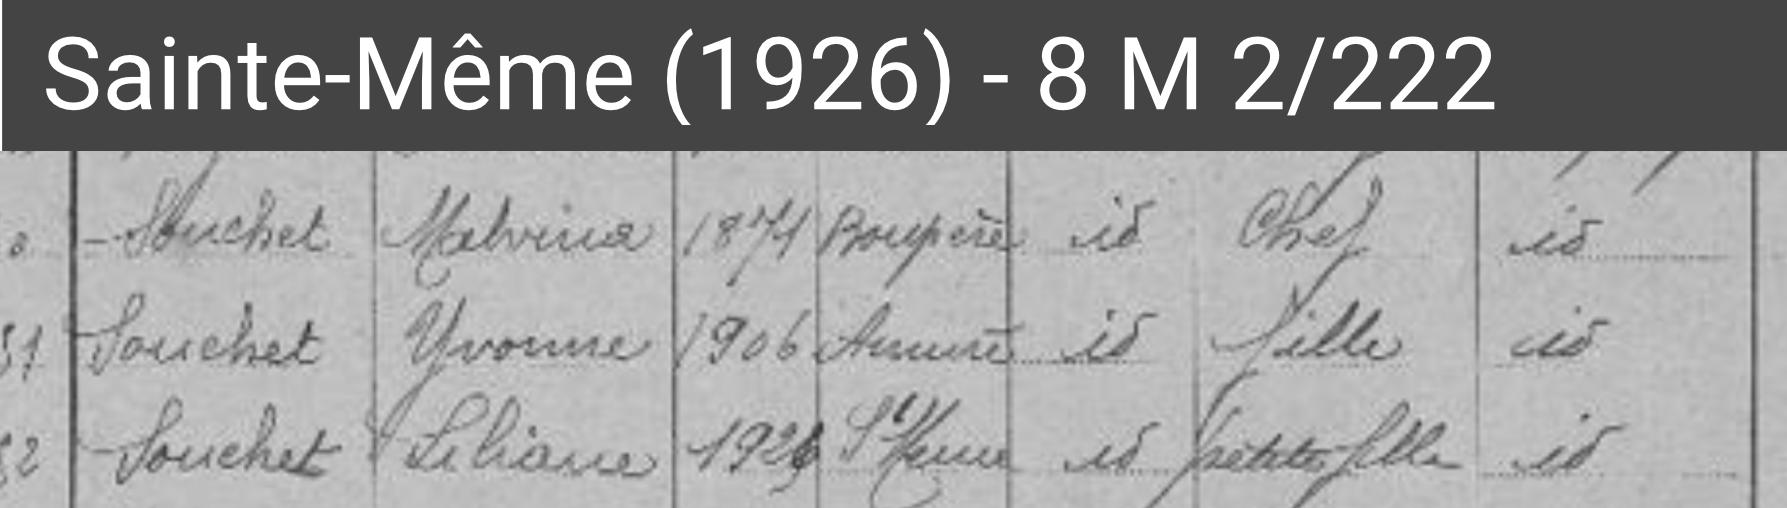 Sainte-Même (1926) - 8 M 2/222
Souchet Malvina 1874 Boupère id Chef id
51 Souchet Yvonne 1906 id fille id
52 Souchet Liliane 1926 Ste Même id petite fille id